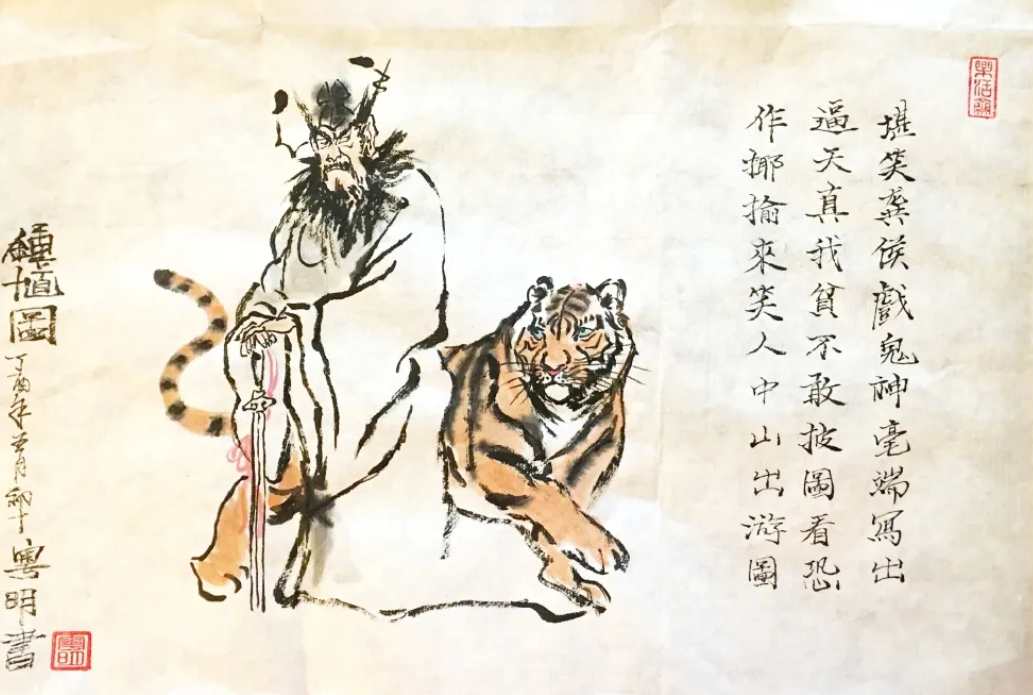 樂活齋
堪笑龔侯戲鬼神毫端寫出
逼天真我貧不敢披圖看恐
作揶揄來笑人中山出游圖
鍾馗圖
丁酉年 粵明書